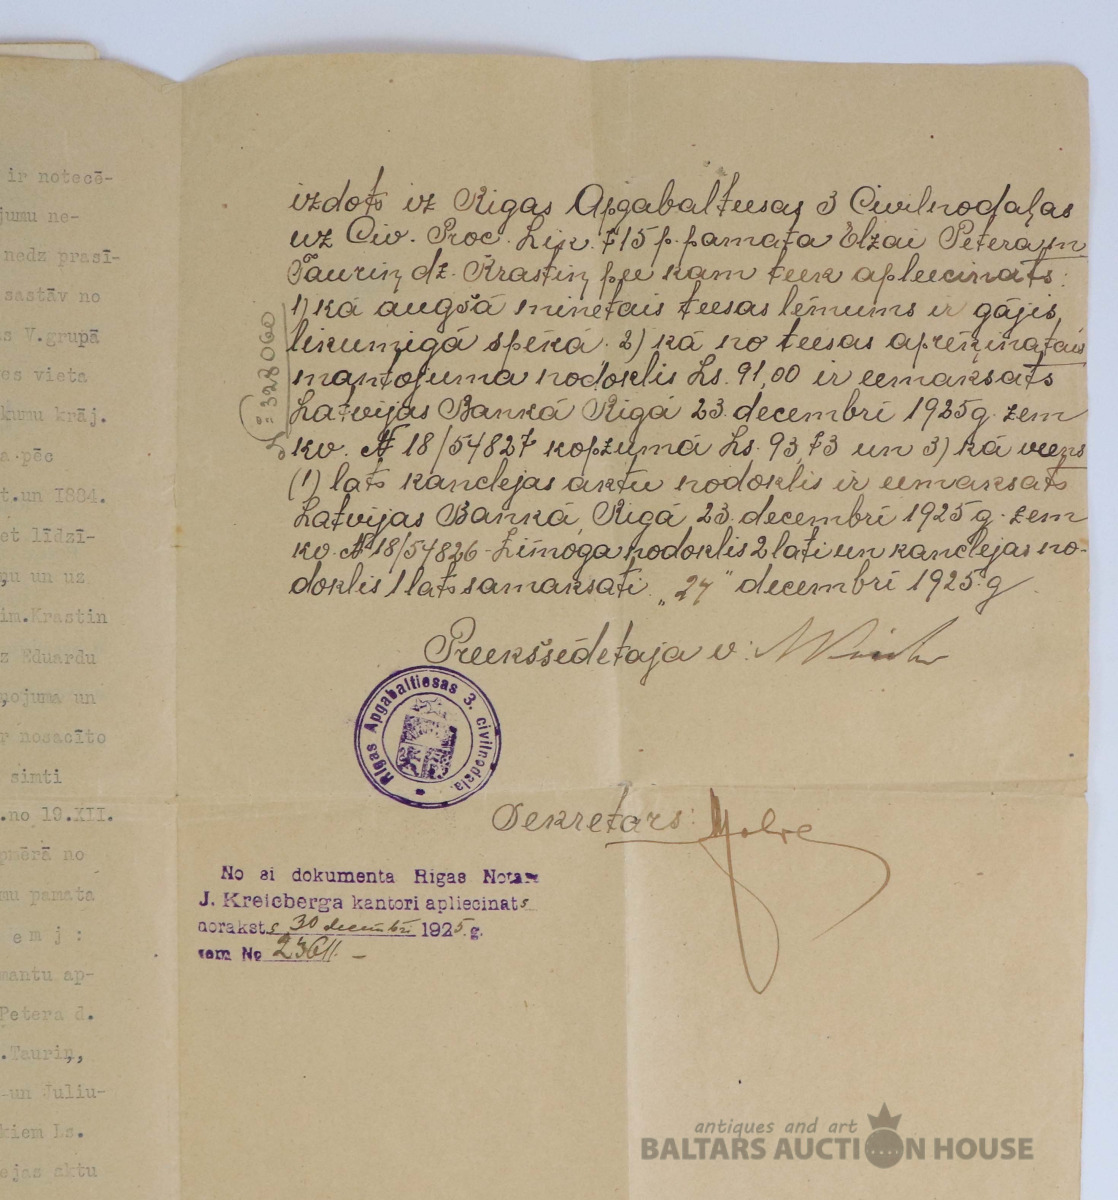 ir notecē-
jumu ne-
nedz prasī-
sastāv no
V.grupā
vieta
krāj.
pēc
t.un 1884.
līdzī-
un uz
im.Krastin
Eduardu
un
nosacīto
simti
.no 19.XII.
no
pamata
e m j :
mantu ap-
Petera d.
.Tauriņ,
-un Juliu-
kiem Ls.
ejas aktu
izdots iz Rigas Apgabalteesas 3 Civilnodaļas
uz Civ. Proc. Lik. 715 p. pamata Elzai Petera m
Tauriņ dz. Krastiņ pee kam teek apleecinats:
1) kā augšā minetais teesas lēmums ir gājis
likumigā spēkā. 2) kā no teesas aprēķinatais
mantojuma nodoklis Ls. 91,00 ir eemaksats
Latvijas Bankā Rigā 23. decembrī 1925 g. zem
kv. № 18/54827 kopzumā Ls. 93,73 un 3) kā veens
(1) lats kanclejas aktu nodoklis ir eemaksats
Latvijas Bankā, Rigā 23. decembrī 1925 g. zem
kv. № 18/54826 - Zīmoga nodoklis 2 lati un kanclejas no-
doklis 1 lats samaksati. „24" decembrī 1925. g.
328060
Preekšsēdetaja v:
Rigas Apgabaltiesas 3. civilnodaļa.
Sekretars:
No si dokumenta Rigas Notara
J. Kreicberga kantori apliecinats
noraksts 30 decembri 1925. g.
zem № 23611. —
antiques and art
BALTARS AUCTION HOUSE